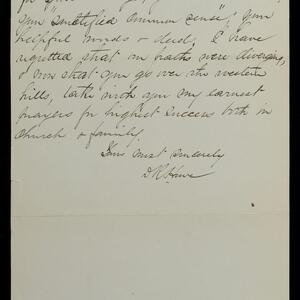 for your
your "sanctified common sense", your
helpful words & deeds, I have
regretted that our paths were diverging,
& now that you go over the western
hills, take with you my earnest
prayers for highest success both in
church & family.
Yours most sincerely